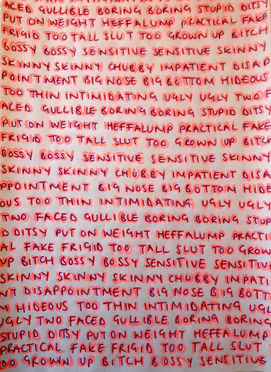 FACED GULLIBLE BORING BORING STUPID DITSY
PUT ON WEIGHT HEFFALUMP PRACTICAL FAKE
FRIGID TOO TALL SLUT TOO GROWN UP BITCH
BOSSY BOSSY SENSITIVE SENSITIVE SKINNY
SKINNY SKINNY CHUBBY IMPATIENT DISAP
POINTMENT BIG NOSE BIG BOTTOM HIDEOUS
TOO THIN INTIMIDATING UGLY UGLY TWO F
ACED GULLIBLE BORING BORING STUPID DITSY
PUT ON WEIGHT HEFFALUMP PRACTICAL FAKE
FRIGID TOO TALL SLUT TOO GROWN UP BITCH
BOSSY BOSSY SENSITIVE SENSITIVE SKINNY
SKINNY SKINNY CHUBBY IMPATIENT DISA
PPOINTMENT BIG NOSE BIG BOTTOM HIDE
OUS TOO THIN INTIMIDATING UGLY UGLY
TWO FACED GULLIBLE BORING BORING STUPI
D DITSY PUT ON WEIGHT HEFFALUMP PRACTIC
AL FAKE FRIGID TOO TALL SLUT TOO GROWN
UP BITCH BOSSY BOSSY SENSITIVE SENSITIVE
SKINNY SKINNY SKINNY CHUBBY IMPATIE
NT DISAPPOINTMENT BIG NOSE BIG BOTTO
M HIDEOUS TOO THIN INTIMIDATING UGLY
UGLY TWO FACED GULLIBLE BORING BORING
STUPID DITSY PUT ON WEIGHT HEFFALUMP
PRACTICAL FAKE FRIGID TOO TALL SLUT T
OO GROWN UP BITCH BOSSY SENSITIVE